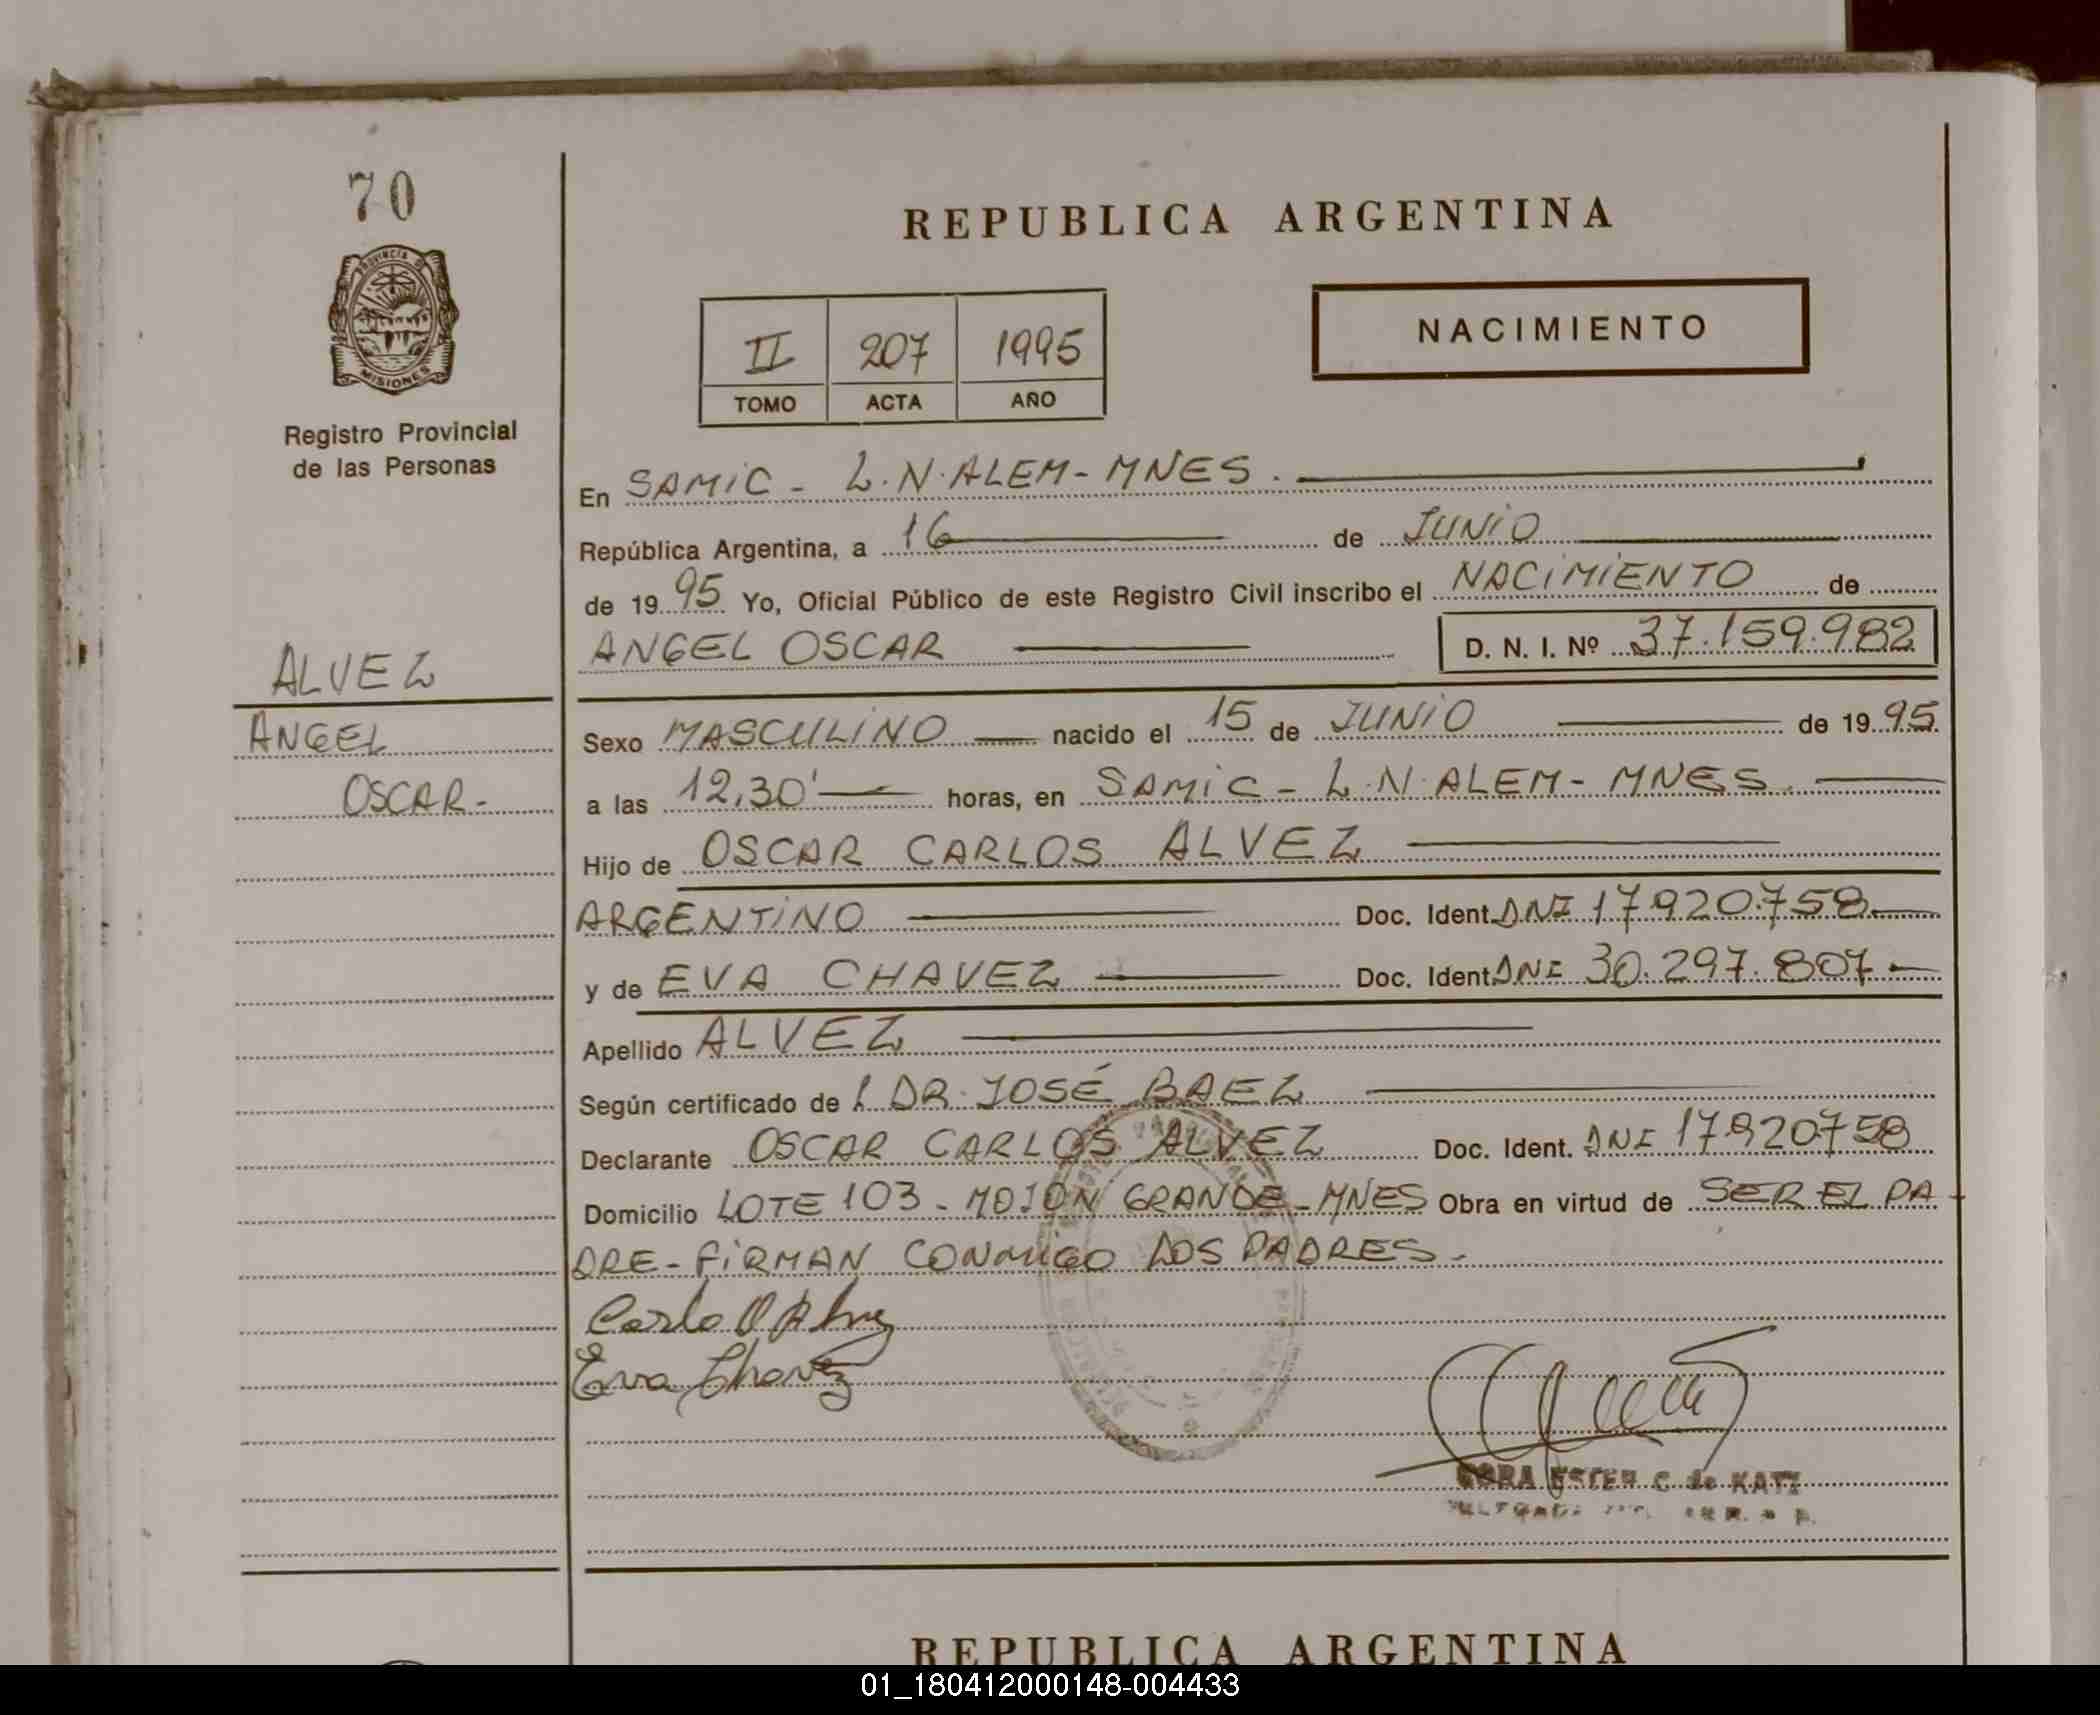 70
PROVINCIA DE
MISIONES
Registro Provincial
de las Personas
ALVEZ
ANGEL
OSCAR-
REPUBLICA ARGENTINA
II 207 1995
TOMO ACTA AÑO
NACIMIENTO
En SAMIC - L.N.ALEM-MNES.
República Argentina, a 16 de JUNIO
de 1995 Yo, Oficial Público de este Registro Civil inscribo el NACIMIENTO de
ANGEL OSCAR D. N. I. Nº 37.159.982
Sexo MASCULINO nacido el 15 de JUNIO de 1995
a las 12,30' horas, en SAMIC - L.N.ALEM - MNES.
Hijo de OSCAR CARLOS ALVEZ
ARGENTINO Doc. Ident. DNI 17.920.758
y de EVA CHAVEZ Doc. Ident. DNI 30.297.807
Apellido ALVEZ
Según certificado de l DR. JOSÉ BAEZ
Declarante OSCAR CARLOS ALVEZ Doc. Ident. DNI 17.920.758
Domicilio LOTE 103 - MOJON GRANDE - MNES Obra en virtud de SER EL PA-
DRE - FIRMAN CONMIGO LOS PADRES.-
Eva Chavez
ESTER C de KATZ
REPUBLICA ARGENTINA
01_180412000148-004433